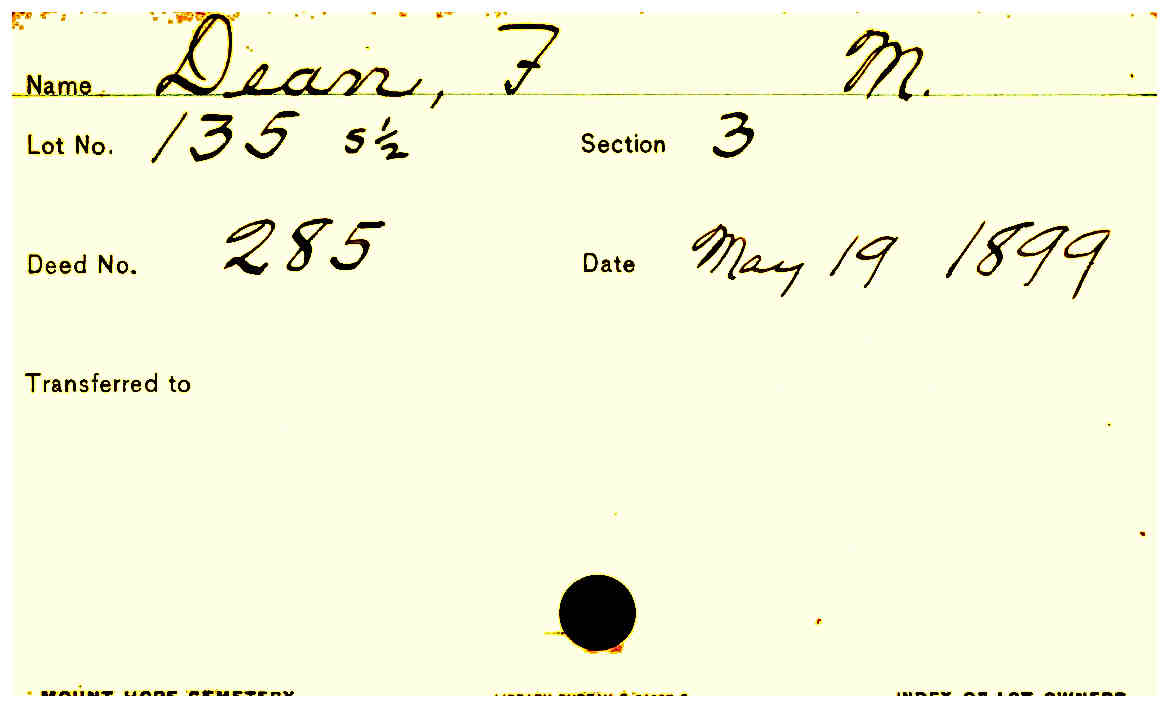 Name Dean, F M.
Lot No. 135 S½ Section 3
Deed No. 285 Date May 19 1899
Transferred to
MOUNT HOPE CEMETERY INDEX OF LOT OWNERS